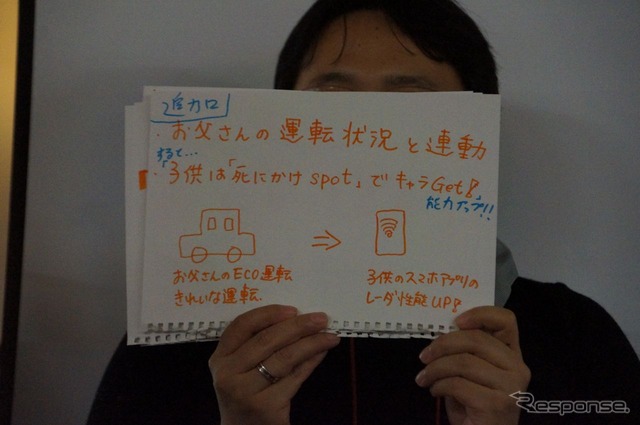 追加
・お父さんの運転状況と連動
すると…
・子供は「死にかけspot」でキャラGet!
能力アップ!!
⇒
お父さんのECO運転
きれいな運転.
子供のスマホアプリの
レーダ性能UP!
Response.